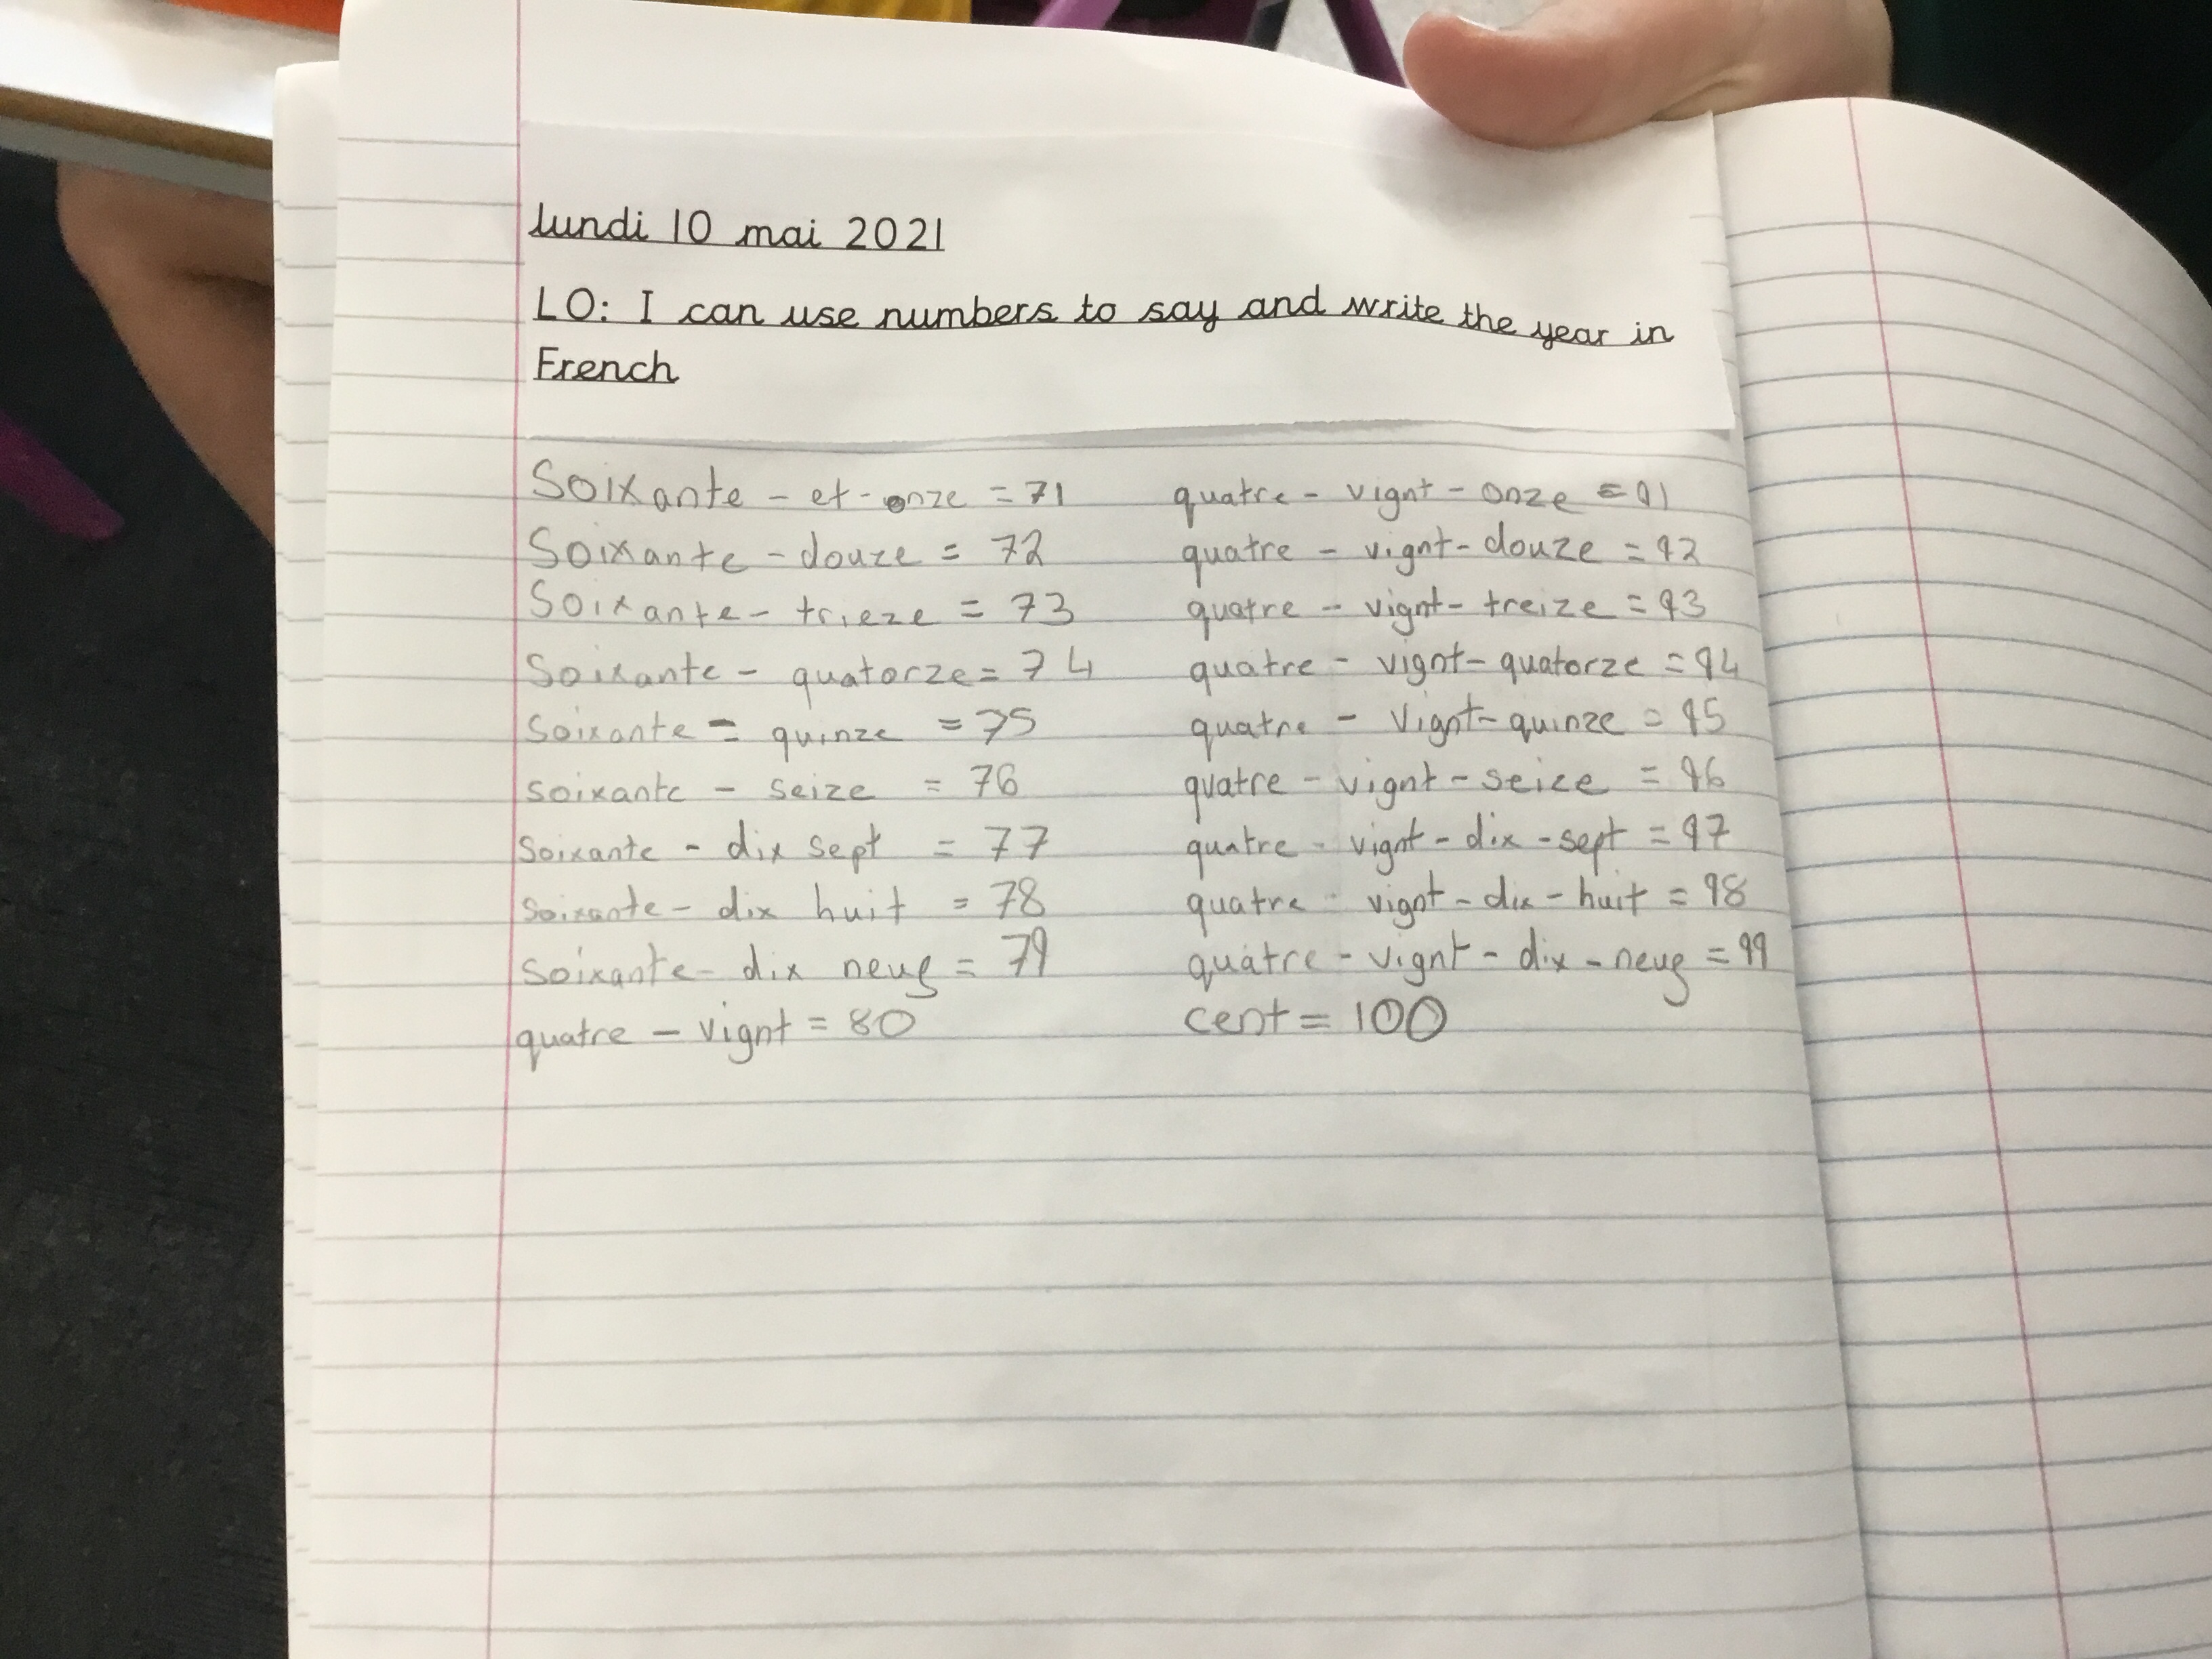 lundi 10 mai 2021
LO: I can use numbers to say and write the year in
French
Soixante - et - onze = 71
Soixante - douze = 72
Soixante - trieze = 73
Soixante - quatorze = 74
Soixante - quinze = 75
soixante - seize = 76
soixante - dix sept = 77
soixante - dix huit = 78
soixante - dix neuf = 79
quatre - vignt = 80
quatre - vignt - onze = 91
quatre - vignt - douze = 92
quatre - vignt - treize = 93
quatre - vignt - quatorze = 94
quatre - vignt - quinze = 95
quatre - vignt - seize = 96
quatre - vignt - dix - sept = 97
quatre - vignt - dix - huit = 98
quatre - vignt - dix - neuf = 99
cent = 100